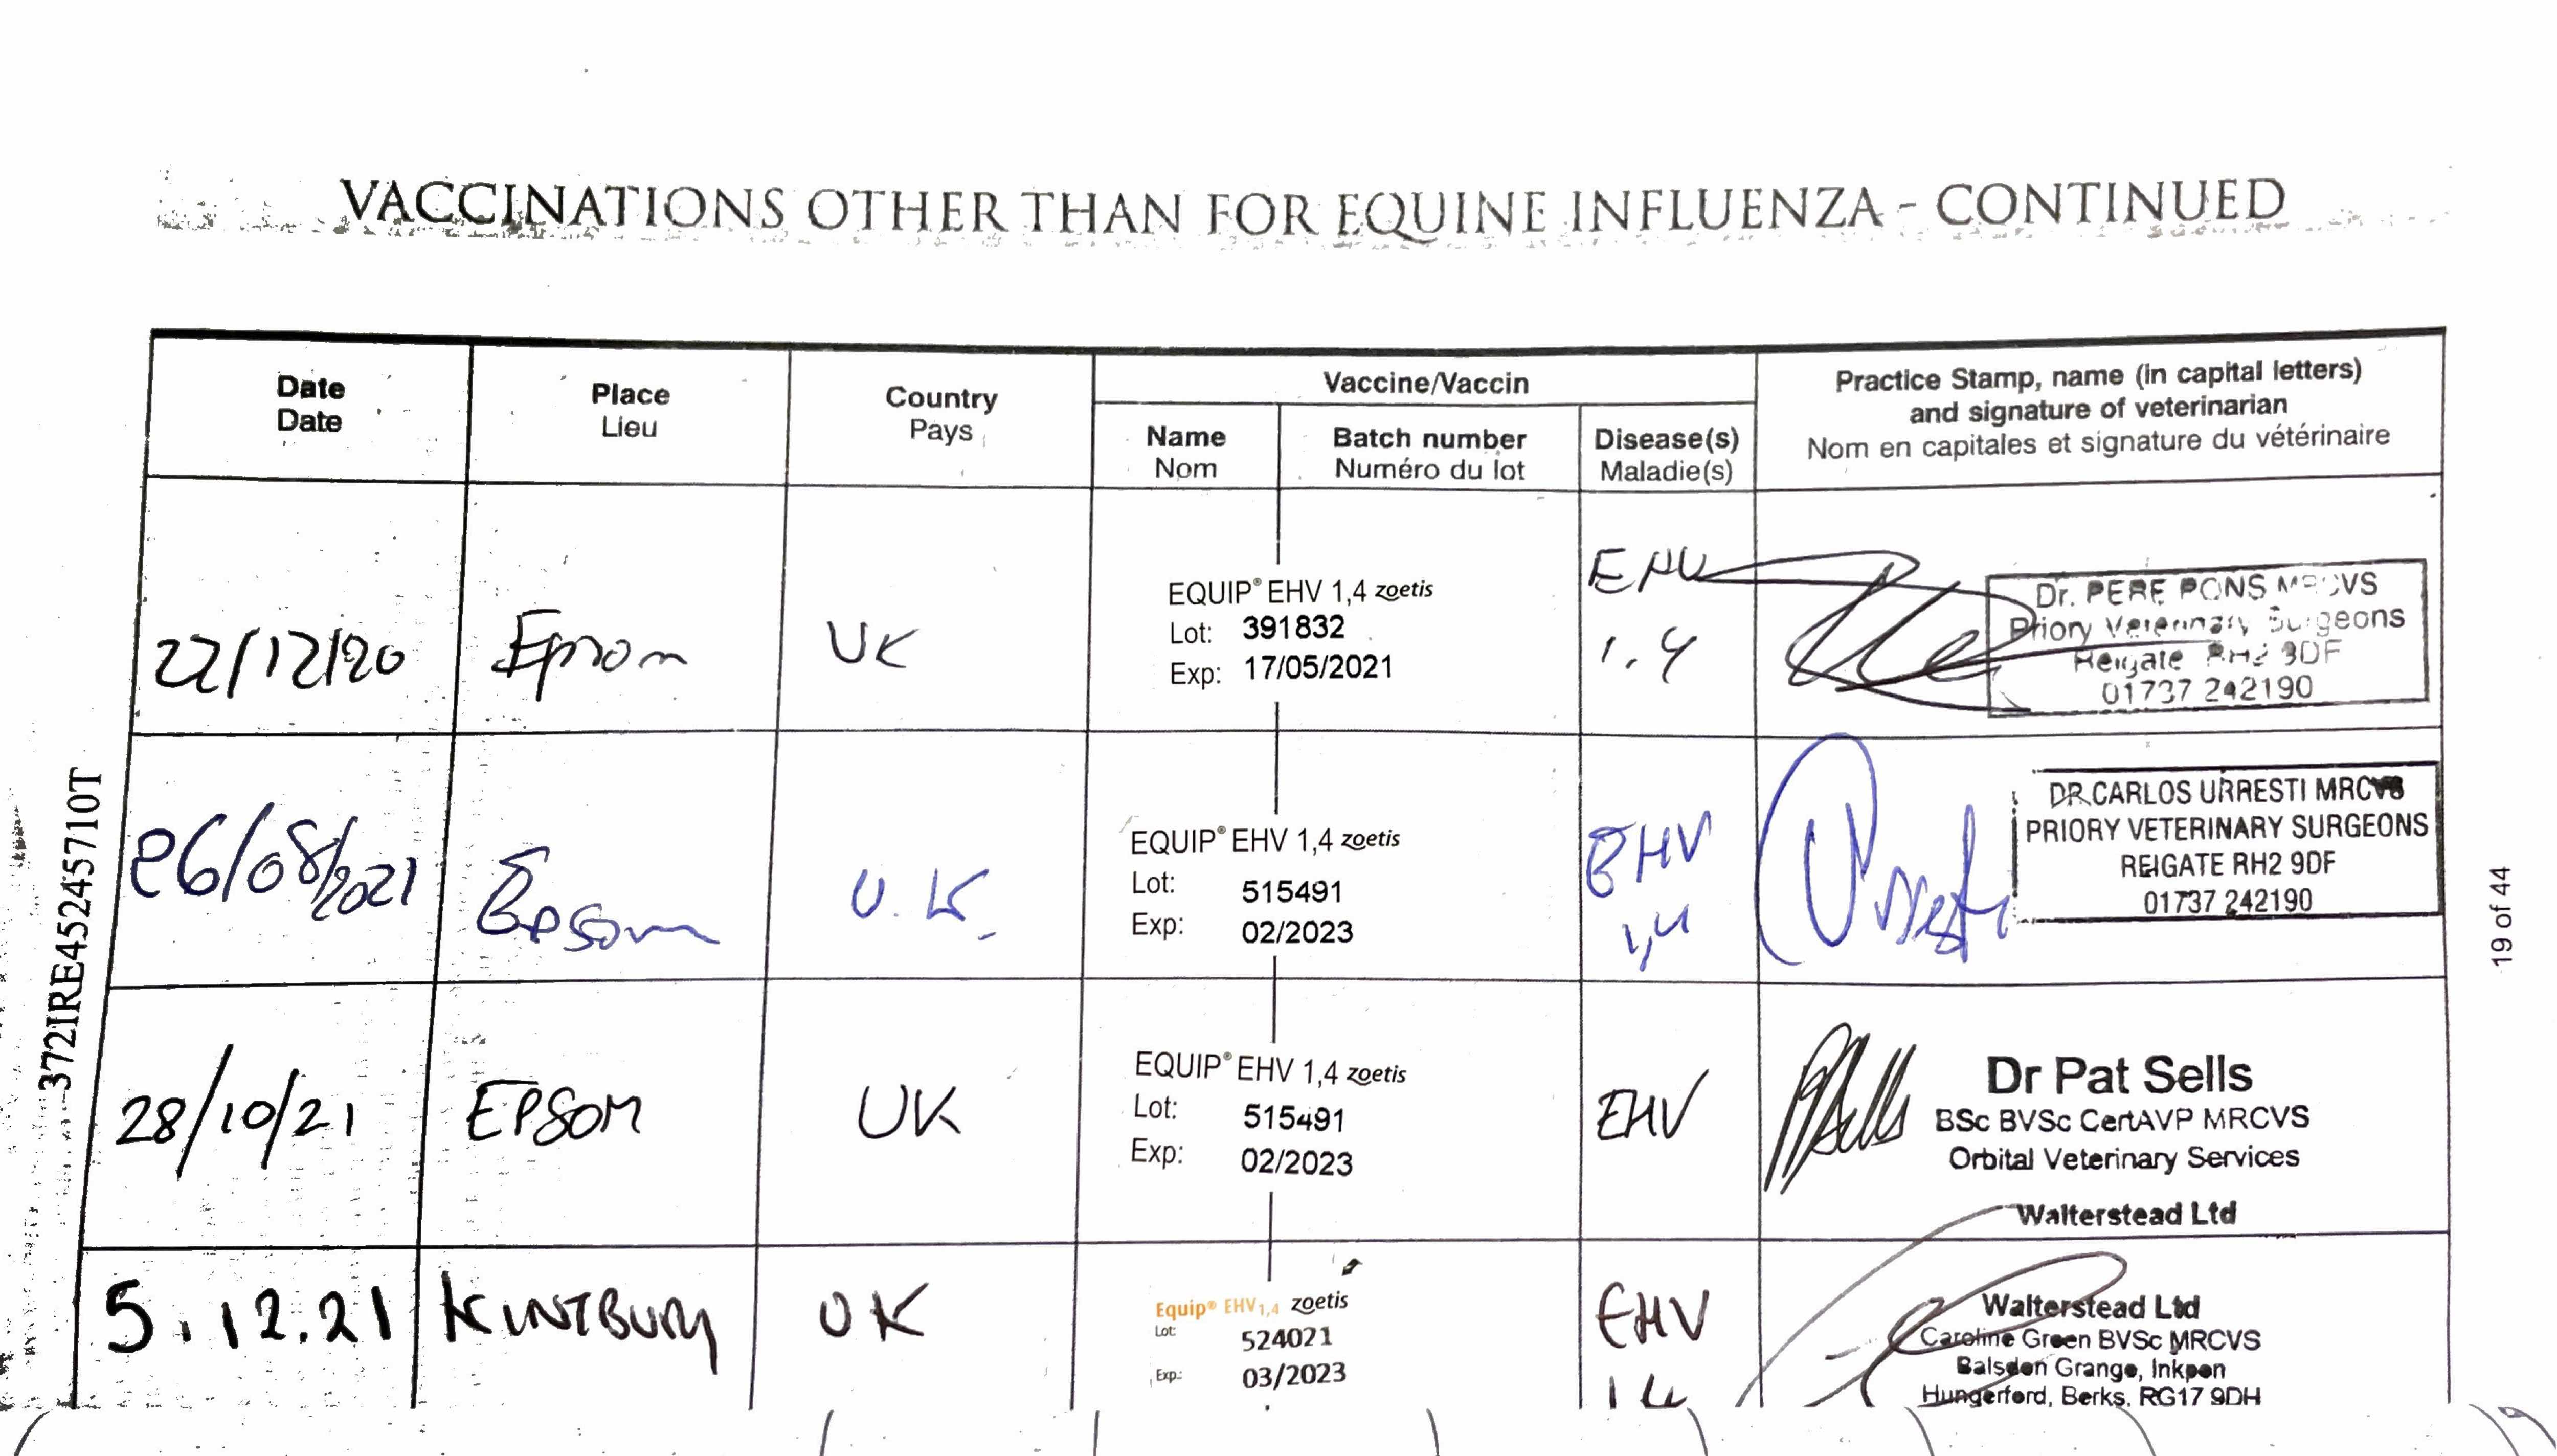 VACCINATIONS OTHER THAN FOR EQUINE INFLUENZA - CONTINUED
Date
Date
Place
Lieu
Country
Pays
Vaccine/Vaccin
Name
Nom
Batch number
Numéro du lot
Disease(s)
Maladie(s)
Practice Stamp, name (in capital letters)
and signature of veterinarian
Nom en capitales et signature du vétérinaire
22/12/20
Epsom
UK
EQUIP® EHV 1,4 zoetis
Lot: 391832
Exp: 17/05/2021
EHV
1.4
Dr. PERE PONS MRCVS
Priory Veterinary Surgeons
Reigate RH2 9DF
01737 242190
26/08/2021
Epsom
U.K.
EQUIP® EHV 1,4 zoetis
Lot: 515491
Exp: 02/2023
EHV
1,4
Urresti
DR.CARLOS URRESTI MRCVS
PRIORY VETERINARY SURGEONS
REIGATE RH2 9DF
01737 242190
28/10/21
EPSOM
UK
EQUIP® EHV 1,4 zoetis
Lot: 515491
Exp: 02/2023
EHV
PSells
Dr Pat Sells
BSc BVSc CertAVP MRCVS
Orbital Veterinary Services
Walterstead Ltd
5.12.21
KINTBURY
UK
Equip® EHV 1,4 zoetis
Lot: 524021
Exp: 03/2023
EHV
14
Walterstead Ltd
Caroline Green BVSc MRCVS
Balsdon Grange, Inkpen
Hungerford, Berks. RG17 9DH
372IRE45245710T
19 of 44